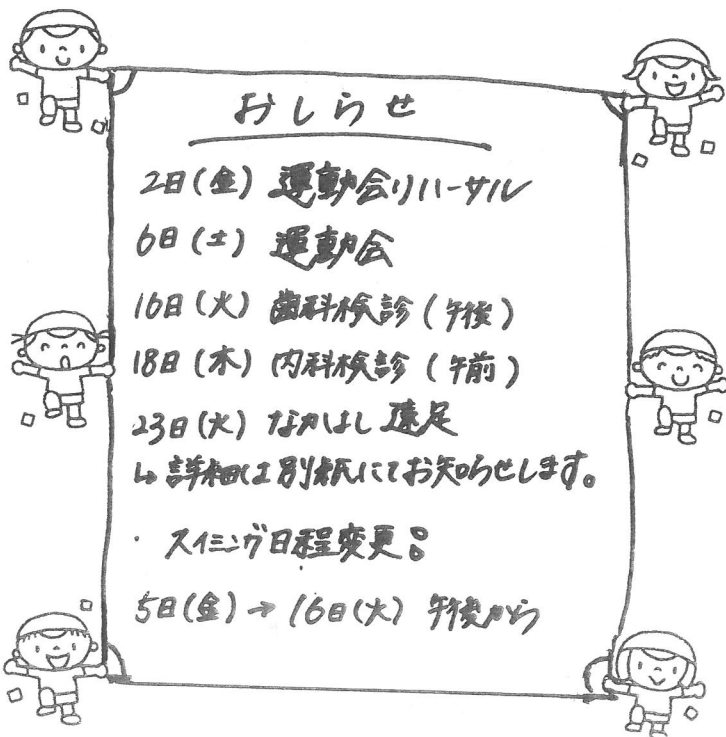 おしらせ
2日(金) 運動会リハーサル
6日(土) 運動会
16日(火) 歯科検診(午後)
18日(木) 内科検診(午前)
23日(火) なかよし遠足
↳ 詳細は別紙にてお知らせします。
・スイミング日程変更:
5日(金) → 16日(火) 午後から